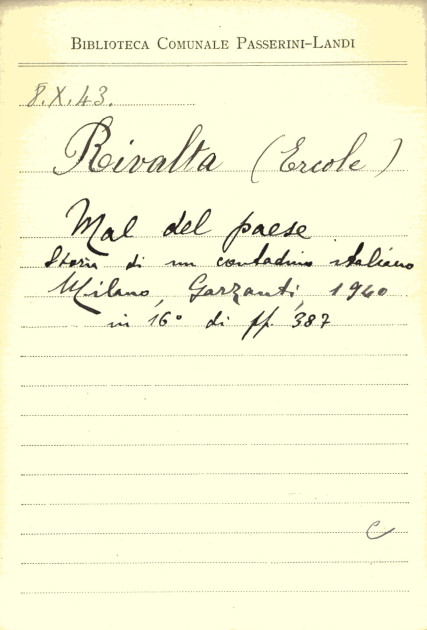 BIBLIOTECA COMUNALE PASSERINI-LANDI
8.X.43.
Rivalta (Ercole)
Mal del paese
Storia di un contadino italiano
Milano, Garzanti, 1940
in 16° di pp. 387
C